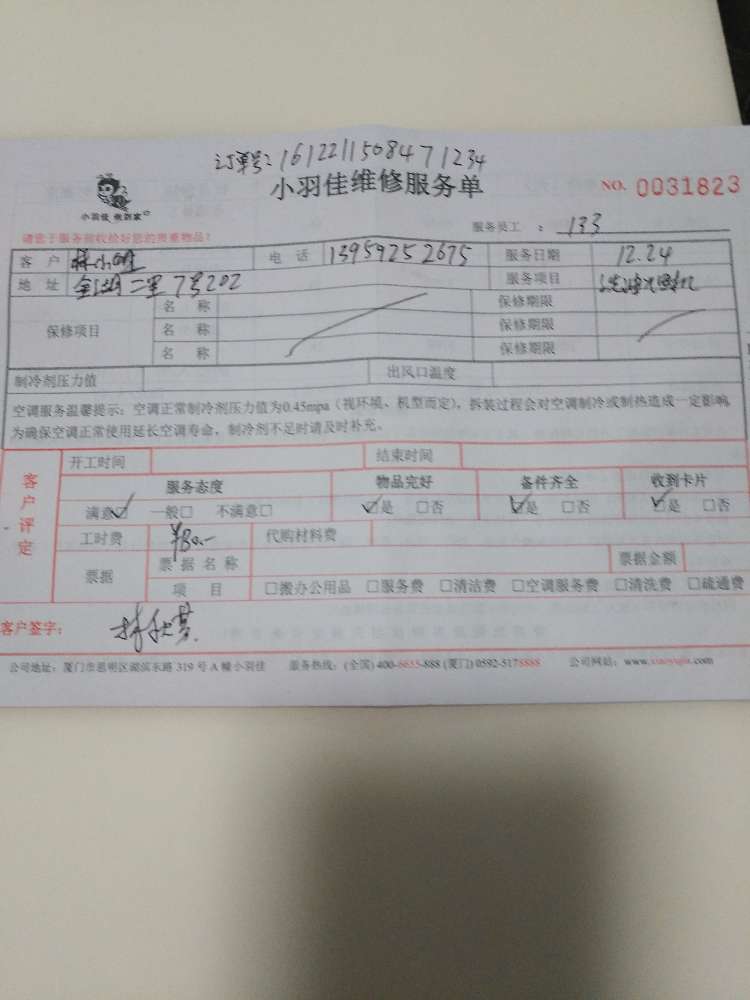 订单号:161221150847 1234
小羽佳维修服务单
NO. 0031823
小羽佳 做到家
服务员工 : 133
请您于服务前收捡好您的贵重物品!
客 户 林小 电 话 13959252675 服务日期 12.24
地 址 金湖二里7号202 服务项目 洗
保修项目 名 称 保修期限
名 称 保修期限
名 称 保修期限
制冷剂压力值 出风口温度
空调服务温馨提示:空调正常制冷剂压力值为0.45mpa(视环境、机型而定),拆装过程会对空调制冷或制热造成一定影响
为确保空调正常使用延长空调寿命,制冷剂不足时请及时补充。
客户评定
开工时间 结束时间
服务态度 物品完好 备件齐全 收到卡片
满意☑ 一般□ 不满意□ ☑是 □否 ☑是 □否 ☑是 □否
工时费 ¥80.- 代购材料费
票据 票 据 名 称 票据金额
项 目 □搬办公用品 □服务费 □清洁费 □空调服务费 □清洗费 □疏通费
客户签字: 林
公司地址:厦门市思明区湖滨东路 319 号 A 幢小羽佳 服务热线:(全国) 400-6655-888 (厦门) 0592-5178888 公司网站:www.xiaoyujia.com